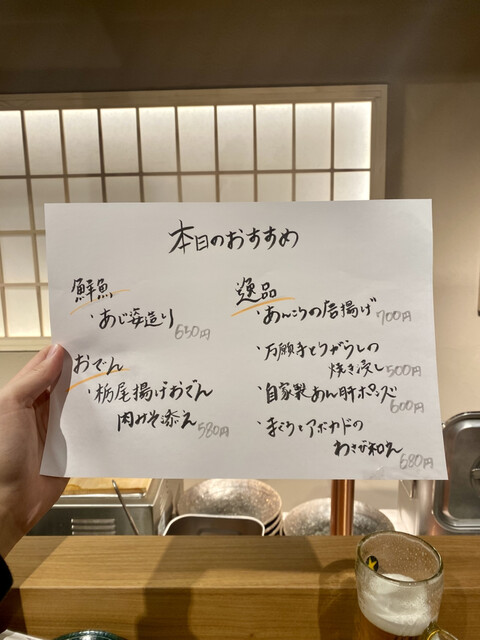 本日のおすすめ
鮮魚
・あじ姿造り 650円
おでん
・栃尾揚げおでん
肉みそ添え 580円
逸品
・あんこうの唐揚げ 700円
・万願寺とうがらしの
焼き浸し 500円
・自家製あん肝ポン酢 600円
・まぐろとアボカドの
わさび和え 680円